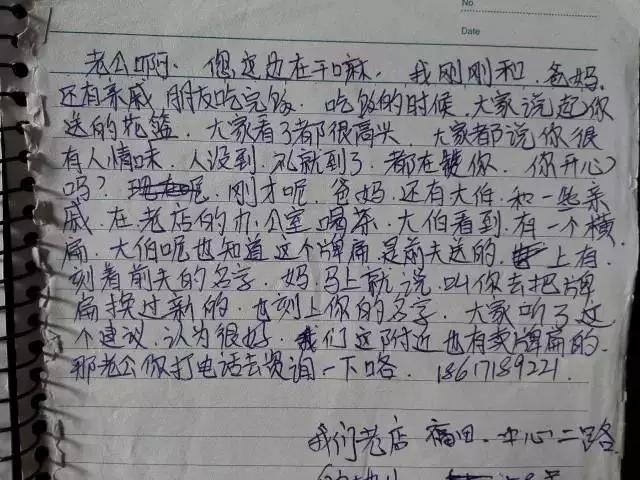 No
Date
老公啊. 您这边在干嘛. 我刚刚和. 爸妈.
还有亲戚 朋友吃完饭. 吃饭的时候. 大家说起你
送的花篮. 大家看了都很高兴. 大家都说你很
有人情味. 人没到. 礼就到了. 都在夸你. 你开心
吗? 刚才呢. 爸妈. 还有大伯. 和一些亲
戚. 在老店的办公室喝茶. 大伯看到. 有一个横
扁. 大伯呢也知道这个牌扁是前夫送的. 上有.
刻着前夫的名字. 妈. 马上就说. 叫你去把牌
扁换过新的. 也刻上你的名字. 大家听了这
个建议. 认为很好. 我们这附近也有卖牌扁的.
那老公你打电话去资询一下咯. 18617189221.
我们老店 福田. 中心二路.